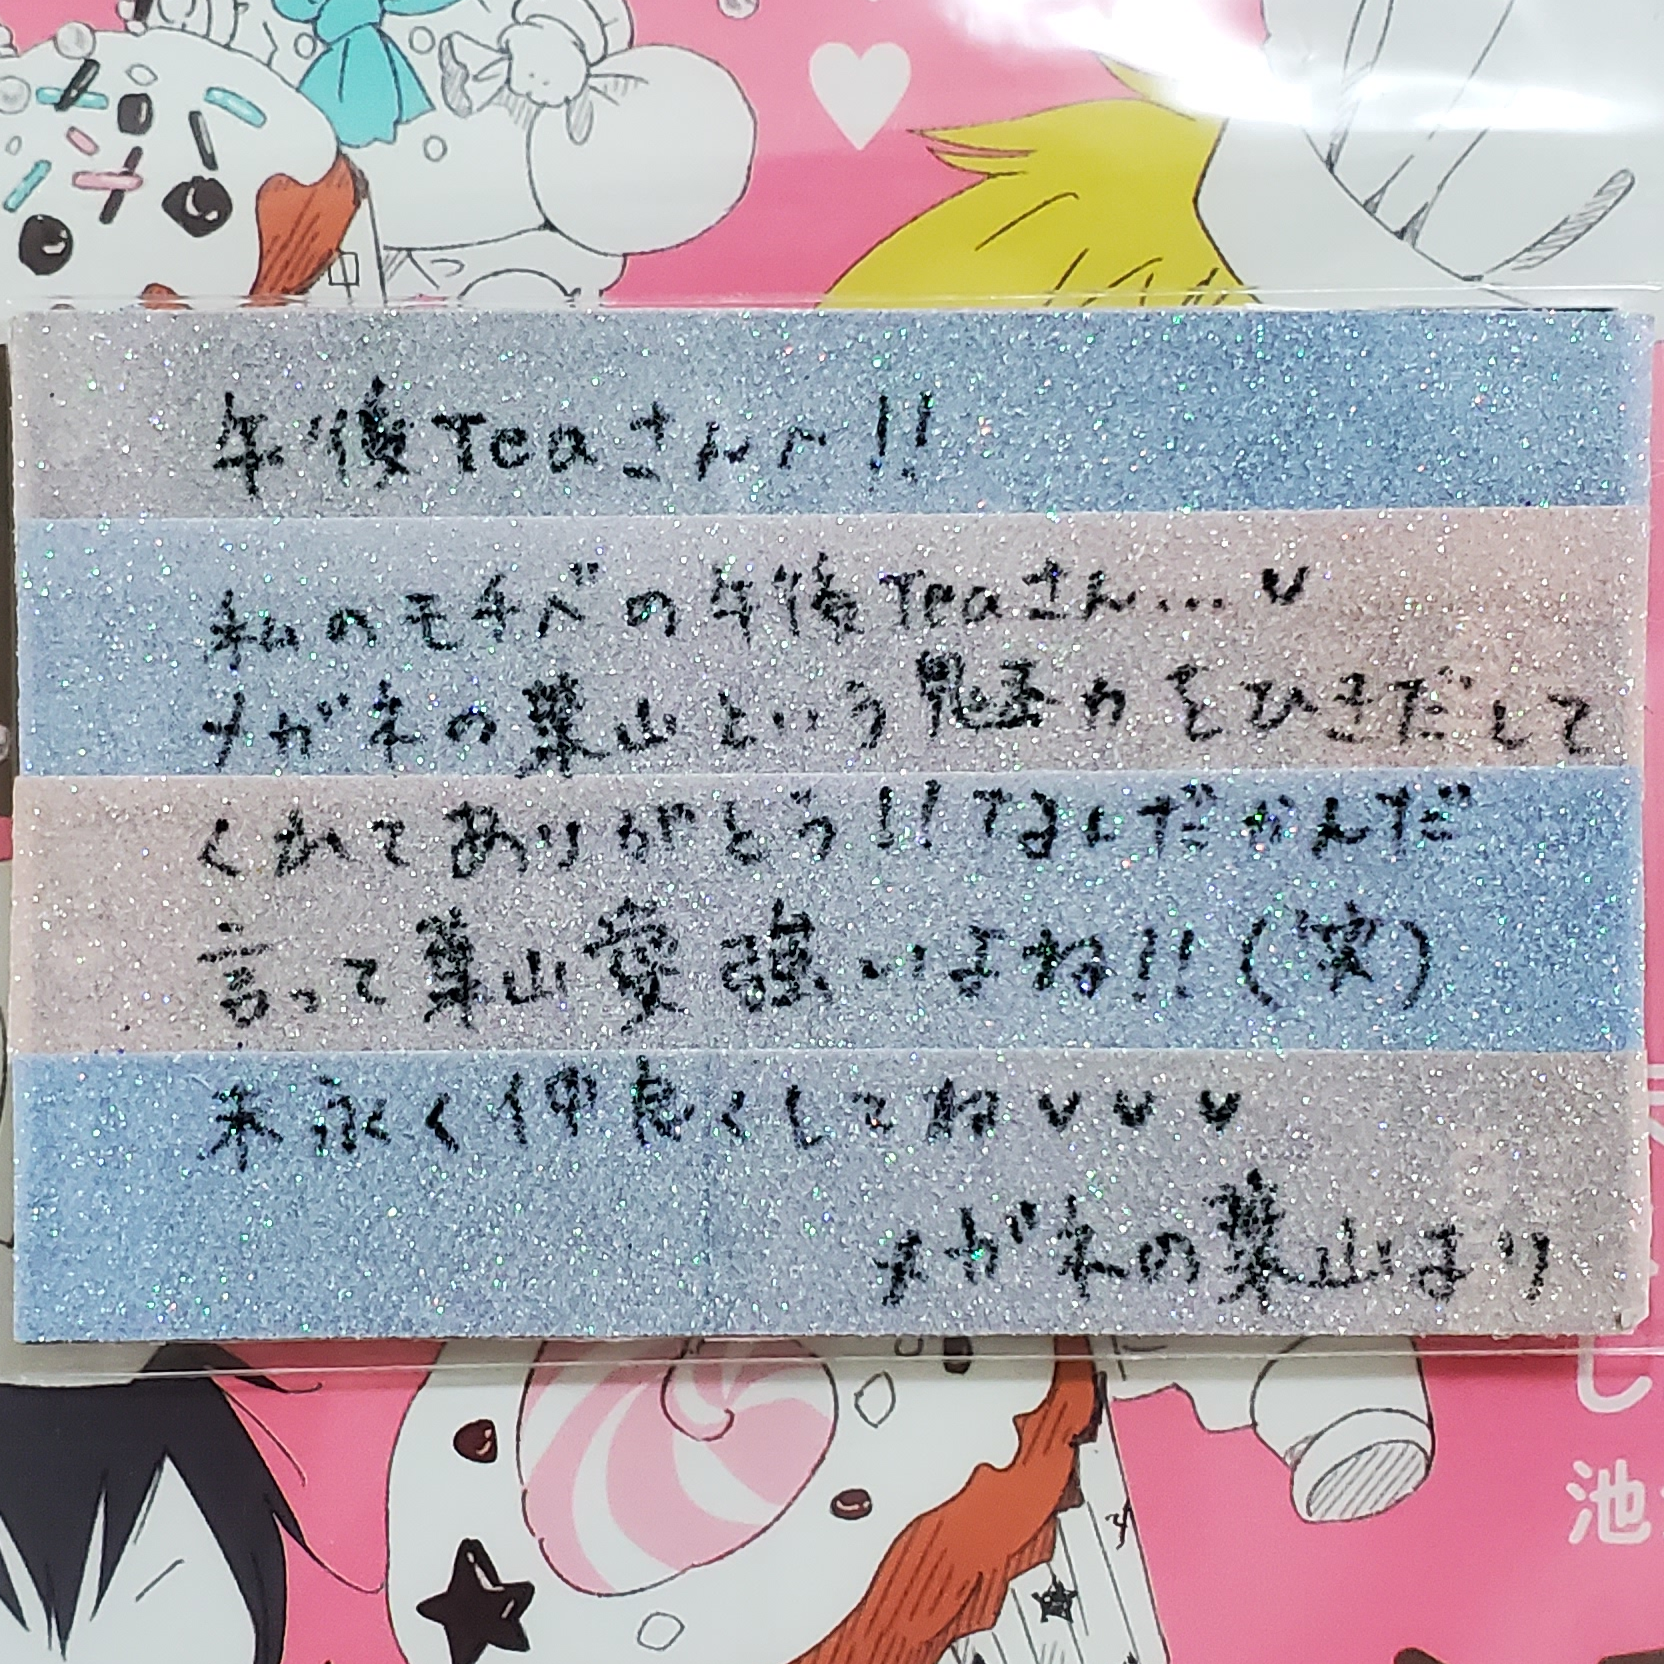 午後Teaさんへ!!
私のモチベの午後Teaさん...♥
メガネの葉山という魅力をひきだして
くれてありがとう!!なんだかんだ
言って葉山愛強いよね!!(笑)
末永く仲良くしてね♥♥♥
メガネの葉山より
し
池